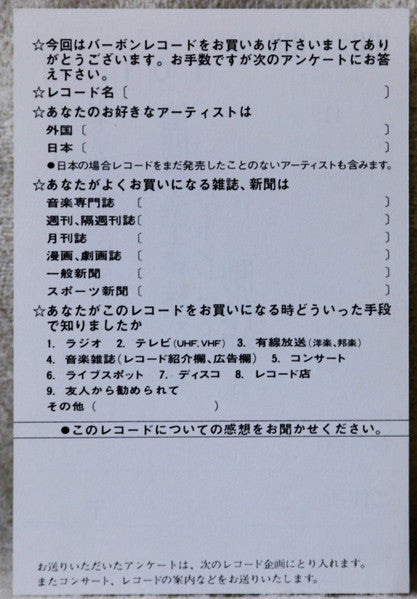 ☆今回はバーボンレコードをお買いあげ下さいましてあり
がとうございます。お手数ですが次のアンケートにお答
え下さい。
☆レコード名〔 〕
☆あなたのお好きなアーティストは
外国〔 〕
日本〔 〕
●日本の場合レコードをまだ発売したことのないアーティストも含みます。
☆あなたがよくお買いになる雑誌、新聞は
音楽専門誌〔 〕
週刊、隔週刊誌〔 〕
月刊誌〔 〕
漫画、劇画誌〔 〕
一般新聞〔 〕
スポーツ新聞〔 〕
☆あなたがこのレコードをお買いになる時どういった手段
で知りましたか
1. ラジオ 2. テレビ(UHF.VHF) 3. 有線放送(洋楽、邦楽)
4. 音楽雑誌(レコード紹介欄、広告欄) 5. コンサート
6. ライブスポット 7. ディスコ 8. レコード店
9. 友人から勧められて
その他( )
●このレコードについての感想をお聞かせください。
お送りいただいたアンケートは、次のレコード企画にとり入れます。
またコンサート、レコードの案内などをお送りいたします。